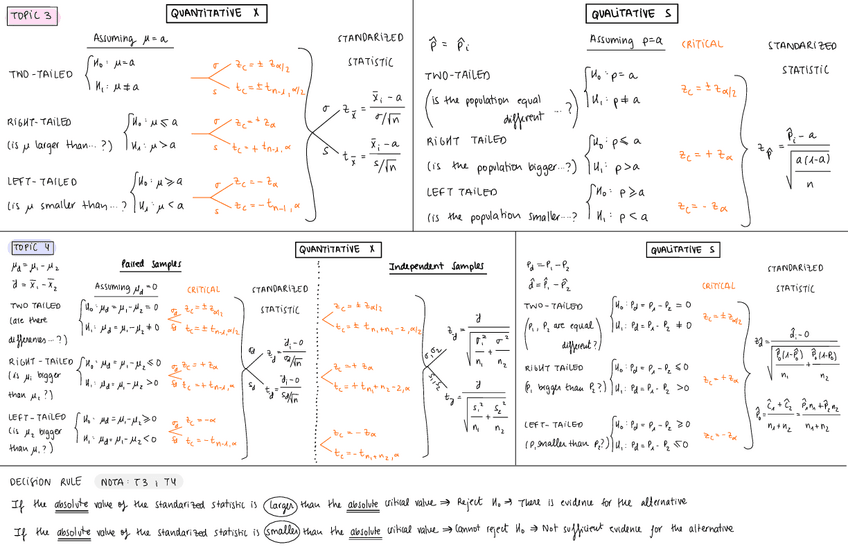 TOPIC 3
QUANTITATIVE X
Assuming μ=a
STANDARIZED
STATISTIC
TWO-TAILED
H₀: μ=a
H₁: μ≠a
σ z_c = ± z_α/2
s t_c = ± t_n-1, α/2
RIGHT-TAILED
(is μ larger than...?)
H₀: μ ≤ a
H₁: μ > a
σ z_c = + z_α
s t_c = + t_n-1, α
LEFT-TAILED
(is μ smaller than...?
H₀: μ ≥ a
H₁: μ < a
σ z_c = - z_α
s t_c = - t_n-1, α
σ z_x̄ = (x̄ᵢ - a) / (σ/√n)
s t_x̄ = (x̄ᵢ - a) / (s/√n)
QUALITATIVE S
p̂ = p̂ᵢ
Assuming p=a
CRITICAL
STANDARIZED
STATISTIC
TWO-TAILED
(is the population equal
different ...?)
H₀: p = a
H₁: p ≠ a
z_c = ± z_α/2
RIGHT TAILED
(is the population bigger...?)
H₀: p ≤ a
H₁: p > a
z_c = + z_α
LEFT TAILED
(is the population smaller...?
H₀: p ≥ a
H₁: p < a
z_c = - z_α
z_p̂ = (p̂ᵢ - a) / √(a(1-a) / n)
TOPIC 4
QUANTITATIVE X
μ_d = μ₁ - μ₂
d̄ = x̄₁ - x̄₂
Paired Samples
Assuming μ_d = 0
CRITICAL
STANDARIZED
STATISTIC
TWO TAILED
(are there
differences...?)
H₀: μ_d = μ₁ - μ₂ = 0
H₁: μ_d = μ₁ - μ₂ ≠ 0
σ_d z_c = ± z_α/2
s_d t_c = ± t_n-1, α/2
RIGHT-TAILED
(is μ₁ bigger
than μ₂?)
H₀: μ_d = μ₁ - μ₂ ≤ 0
H₁: μ_d = μ₁ - μ₂ > 0
σ_d z_c = + z_α
s_d t_c = + t_n-1, α
LEFT-TAILED
(is μ₂ bigger
than μ₁?)
H₀: μ_d = μ₁ - μ₂ ≥ 0
H₁: μ_d = μ₁ - μ₂ < 0
σ_d z_c = - α
s_d t_c = - t_n-1, α
σ_d z_d̄ = (d̄ᵢ - 0) / (σ_d/√n)
s_d t_d̄ = (d̄ᵢ - 0) / (s_d/√n)
Independent Samples
z_c = ± z_α/2
t_c = ± t_n₁+n₂-2, α/2
z_c = + z_α
t_c = + t_n₁+n₂-2, α
z_c = - z_α
t_c = - t_n₁+n₂, α
σ₁, σ₂ z_d̄ = d̄ / √(σ₁²/n₁ + σ²/n₂)
s₁, s₂ t_d̄ = d̄ / √(s₁²/n₁ + s₂²/n₂)
QUALITATIVE S
p_d = p₁ - p₂
d̂ = p̂₁ - p̂₂
CRITICAL
STANDARIZED
STATISTIC
TWO-TAILED
(p₁, p₂ are equal
different?)
H₀: p_d = p₁ - p₂ = 0
H₁: p_d = p₁ - p₂ ≠ 0
z_c = ± z_α/2
RIGHT TAILED
(p₁ bigger than p₂?)
H₀: p_d = p₁ - p₂ ≤ 0
H₁: p_d = p₁ - p₂ > 0
z_c = + z_α
LEFT-TAILED
(p₁ smaller than p₂?)
H₀: p_d = p₁ - p₂ ≥ 0
H₁: p_d = p₁ - p₂ ≤ 0
z_c = - z_α
z_d̂ = (d̂ᵢ - 0) / √(p̂₀(1-p̂₀)/n₁ + p̂₀(1-p̂₀)/n₂)
p̂₀ = (ĉ₁ + ĉ₂) / (n₁+n₂) = (p̂₁n₁ + p̂₂n₂) / (n₁+n₂)
DECISION RULE NOTA: T3 i T4
If the absolute value of the standarized statistic is larger than the absolute critical value ⇒ Reject H₀ ⇒ There is evidence for the alternative
If the absolute value of the standarized statistic is smaller than the absolute critical value ⇒ Cannot reject H₀ ⇒ Not sufficient evidence for the alternative